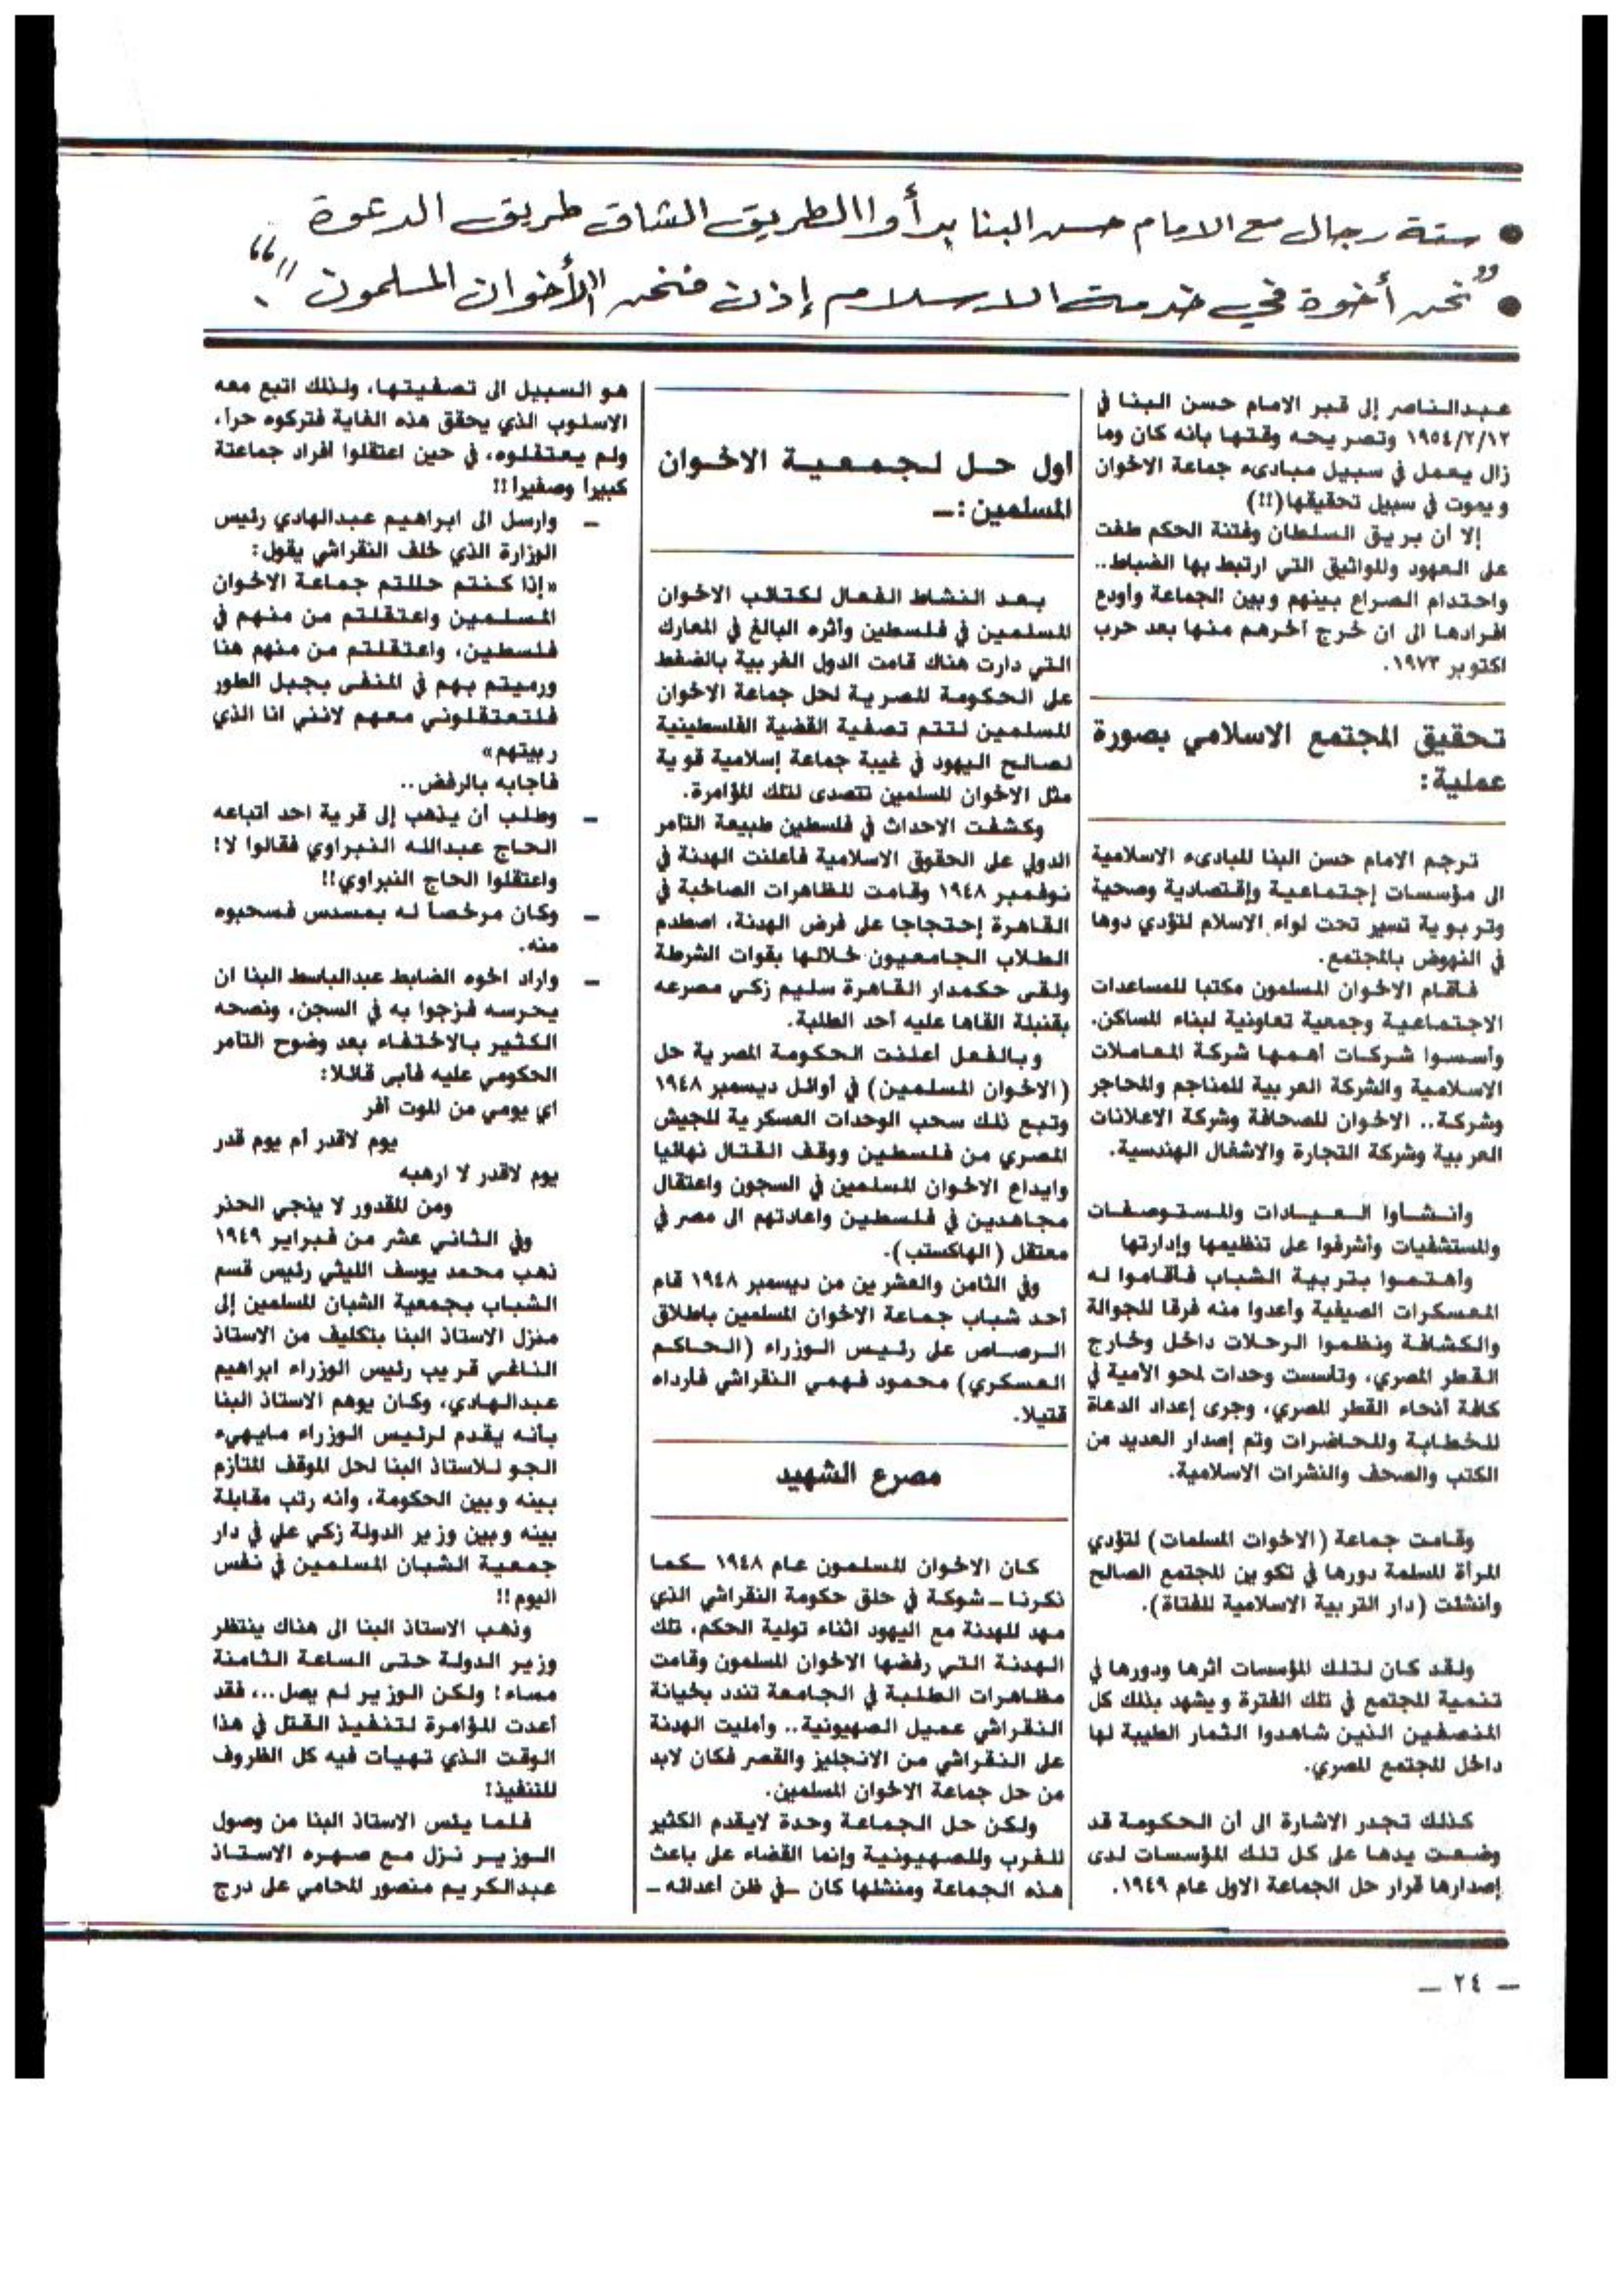 • ستة رجال مع الامام حسن البنا بدأوا الطريق الشاق طريق الدعوة
• "نحن أخوة في خدمة الاسلام إذن فنحن "الأخوان المسلمون".“
عبدالناصر إلى قبر الامام حسن البنا في
١٩٥٤/٢/١٢ وتصريحه وقتها بأنه كان وما
زال يعمل في سبيل مبادىء جماعة الاخوان
ويموت في سبيل تحقيقها(!!)
إلا أن بريق السلطان وفتنة الحكم طغت
على العهود والمواثيق التي ارتبط بها الضباط..
واحتدام الصراع بينهم وبين الجماعة وأودع
افرادها الى ان خرج آخرهم منها بعد حرب
اكتوبر ١٩٧٣.
تحقيق المجتمع الاسلامي بصورة
عملية:
ترجم الامام حسن البنا المبادىء الاسلامية
الى مؤسسات إجتماعية وإقتصادية وصحية
وتربوية تسير تحت لواء الاسلام لتؤدي دوها
في النهوض بالمجتمع.
فأقام الاخوان المسلمون مكتبا للمساعدات
الاجتماعية وجمعية تعاونية لبناء المساكن.
وأسسوا شركات أهمها شركة المعاملات
الاسلامية والشركة العربية للمناجم والمحاجر
وشركة.. الاخوان للصحافة وشركة الاعلانات
العربية وشركة التجارة والاشغال الهندسية.
وأنشأوا العيادات والمستوصفات
والمستشفيات وأشرفوا على تنظيمها وإدارتها
وأهتموا بتربية الشباب فأقاموا له
المعسكرات الصيفية وأعدوا منه فرقا للجوالة
والكشافة ونظموا الرحلات داخل وخارج
القطر المصري، وتأسست وحدات لمحو الامية في
كافة أنحاء القطر المصري، وجرى إعداد الدعاة
للخطابة والمحاضرات وتم إصدار العديد من
الكتب والصحف والنشرات الاسلامية.
وقامت جماعة (الاخوات المسلمات) لتؤدي
المرأة المسلمة دورها في تكوين المجتمع الصالح
وأنشئت (دار التربية الاسلامية للفتاة).
ولقد كان لتلك المؤسسات اثرها ودورها في
تنمية المجتمع في تلك الفترة ويشهد بذلك كل
المنصفين الذين شاهدوا الثمار الطيبة لها
داخل المجتمع المصري.
كذلك تجدر الاشارة الى أن الحكومة قد
وضعت يدها على كل تلك المؤسسات لدى
إصدارها قرار حل الجماعة الاول عام ١٩٤٩.
أول حل لجمعية الاخوان
المسلمين:ـ
بعد النشاط الفعال لكتائب الاخوان
المسلمين في فلسطين وأثره البالغ في المعارك
التي دارت هناك قامت الدول الغربية بالضغط
على الحكومة المصرية لحل جماعة الاخوان
المسلمين لتتم تصفية القضية الفلسطينية
لصالح اليهود في غيبة جماعة إسلامية قوية
مثل الاخوان المسلمين تتصدى لتلك المؤامرة.
وكشفت الاحداث في فلسطين طبيعة التآمر
الدولي على الحقوق الاسلامية فأعلنت الهدنة في
نوفمبر ١٩٤٨ وقامت المظاهرات الصاخبة في
القاهرة إحتجاجا على فرض الهدنة، اصطدم
الطلاب الجامعيون خلالها بقوات الشرطة
ولقى حكمدار القاهرة سليم زكي مصرعه
بقنبلة القاها عليه أحد الطلبة.
وبالفعل أعلنت الحكومة المصرية حل
(الاخوان المسلمين) في أوائل ديسمبر ١٩٤٨
وتبع ذلك سحب الوحدات العسكرية للجيش
المصري من فلسطين ووقف القتال نهائيا
وايداع الاخوان المسلمين في السجون واعتقال
مجاهدين في فلسطين واعادتهم الى مصر في
معتقل (الهاكستب).
وفي الثامن والعشرين من ديسمبر ١٩٤٨ قام
أحد شباب جماعة الاخوان المسلمين باطلاق
الرصاص على رئيس الوزراء (الحاكم
العسكري) محمود فهمي النقراشي فارداه
قتيلا.
مصرع الشهيد
كان الاخوان المسلمون عام ١٩٤٨ ـ كما
ذكرنا ـ شوكة في حلق حكومة النقراشي الذي
مهد للهدنة مع اليهود اثناء تولية الحكم، تلك
الهدنة التي رفضها الاخوان المسلمون وقامت
مظاهرات الطلبة في الجامعة تندد بخيانة
النقراشي عميل الصهيونية.. وأمليت الهدنة
على النقراشي من الانجليز والقصر فكان لابد
من حل جماعة الاخوان المسلمين.
ولكن حل الجماعة وحدة لايقدم الكثير
للغرب وللصهيونية وإنما القضاء على باعث
هذه الجماعة ومنشئها كان ـ في ظن أعدائه ـ
هو السبيل الى تصفيتها، ولذلك اتبع معه
الاسلوب الذي يحقق هذه الغاية فتركوه حرا،
ولم يعتقلوه، في حين اعتقلوا أفراد جماعتة
كبيرا وصغيرا!!
ـ وارسل الى ابراهيم عبدالهادي رئيس
الوزارة الذي خلف النقراشي يقول:
«إذا كنتم حللتم جماعة الاخوان
المسلمين واعتقلتم من منهم في
فلسطين، واعتقلتم من منهم هنا
ورميتم بهم في المنفى بجبل الطور
فلتعتقلوني معهم لانني انا الذي
ربيتهم»
فأجابه بالرفض..
ـ وطلب أن يذهب إلى قرية احد أتباعه
الحاج عبدالله النبراوي فقالوا لا!
واعتقلوا الحاج النبراوي!!
ـ وكان مرخصا له بمسدس فسحبوه
منه.
ـ واراد اخوه الضابط عبدالباسط البنا ان
يحرسه فزجوا به في السجن، ونصحه
الكثير بالاختفاء بعد وضوح التآمر
الحكومي عليه فأبى قائلا:
اي يومي من الموت أفر
يوم لاقدر أم يوم قدر
يوم لاقدر لا ارهبه
ومن المقدور لا ينجي الحذر
وفي الثاني عشر من فبراير ١٩٤٩
ذهب محمد يوسف الليثي رئيس قسم
الشباب بجمعية الشبان المسلمين إلى
منزل الاستاذ البنا بتكليف من الاستاذ
الناغي قريب رئيس الوزراء ابراهيم
عبدالهادي، وكان يوهم الاستاذ البنا
بأنه يقدم لرئيس الوزراء مايهيء
الجو للاستاذ البنا لحل الموقف المتأزم
بينه وبين الحكومة، وأنه رتب مقابلة
بينه وبين وزير الدولة زكي علي في دار
جمعية الشبان المسلمين في نفس
اليوم!!
وذهب الاستاذ البنا الى هناك ينتظر
وزير الدولة حتى الساعة الثامنة
مساء! ولكن الوزير لم يصل... فقد
أعدت المؤامرة لتنفيذ القتل في هذا
الوقت الذي تهيأت فيه كل الظروف
للتنفيذ!
فلما يئس الاستاذ البنا من وصول
الوزير نزل مع صهره الاستاذ
عبدالكريم منصور المحامي على درج
ـ ٢٤ ـ